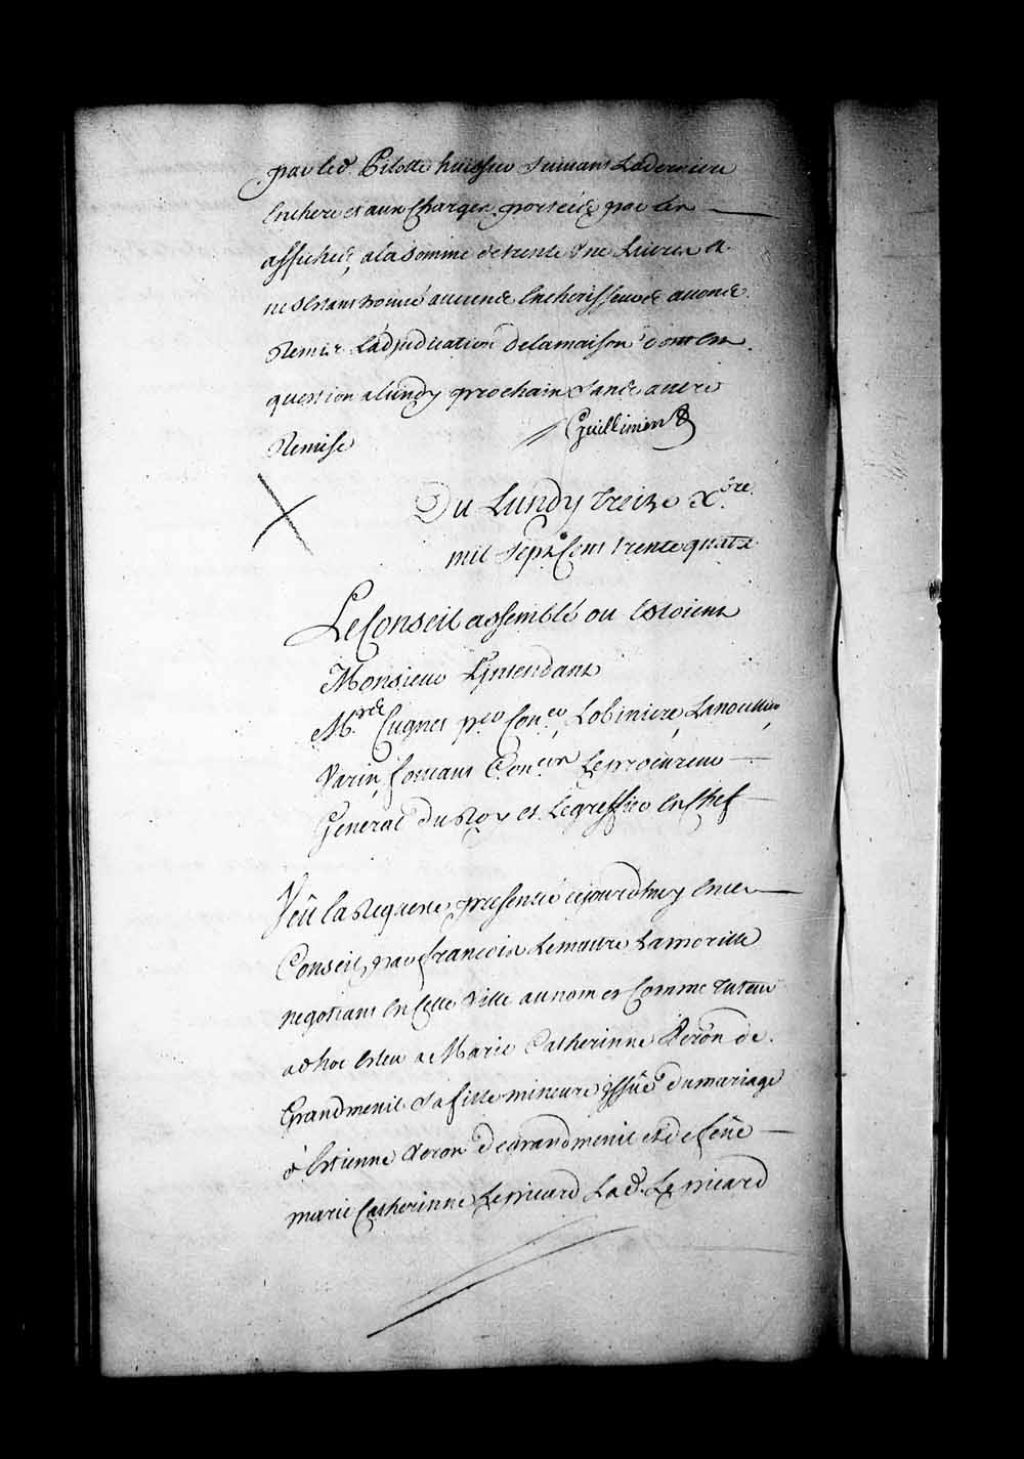 par led. Pilotte huissier suivant La derniere
Enchere et aux Charges portéés par les
affiches, a la Somme de trente Une Livres et
ne s'Estant trouvé aucuns Encherisseurs avons
Remis L'adjudication de la maison dont Est
question a Lundy prochain Sans autre
Remise Guillimin
Du Lundy treize Xbre.
mil sept Cent trente quatre
Le Conseil assemblé ou Estoient
Monsieur L'Intendant
Mrs. Cugnet per. Coner. Lotbiniere, Lanoullier,
Varin, foucaut Coners. Le procureur
General du Roy et Le greffier En Chef
Veû la Requeste presentée cejourdhuy En ce
Conseil, par francois Lemaitre Lamorille
negotiant En Cette Ville au nom et Comme tuteur
ad hoc Esleu a Marie Catherinne Veron de
Grandmenil sa fille mineure issüe du mariage
d'Estienne Veron de grandmenil et de feüe
marie Catherinne Le picard Lad. Le picard